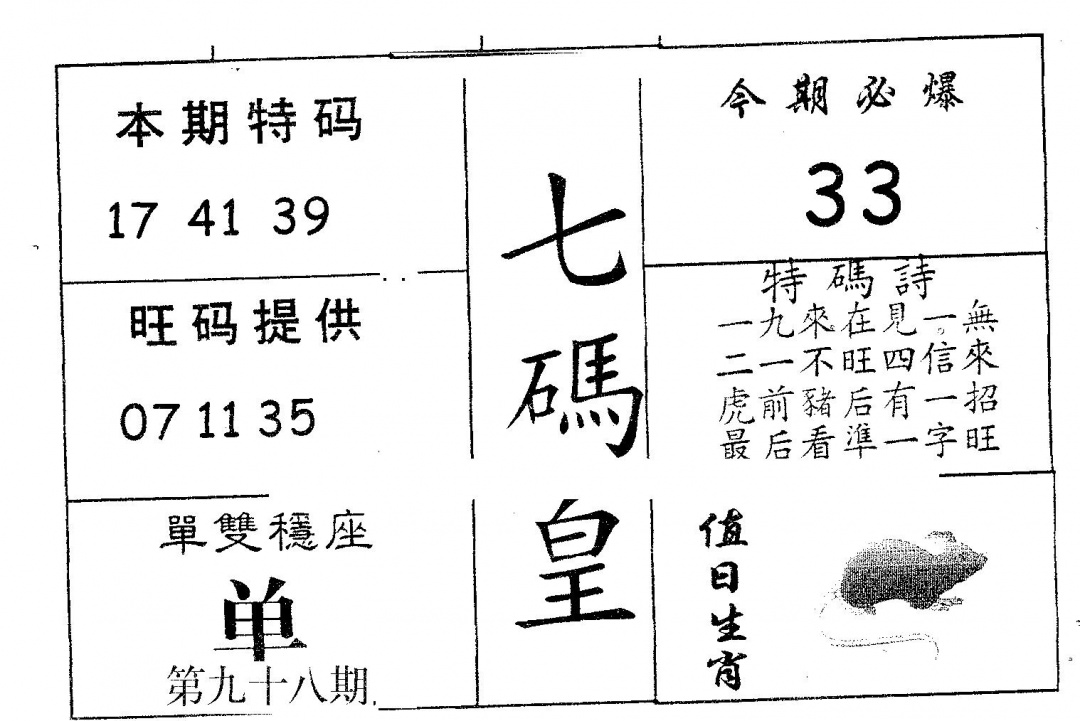 本期特码
17 41 39
旺码提供
07 11 35
單雙穩座
单
第九十八期
七碼皇
今期必爆
33
特碼詩
一九來在見一無
二一不旺四信來
虎前豬后有一招
最后看準一字旺
值日生肖